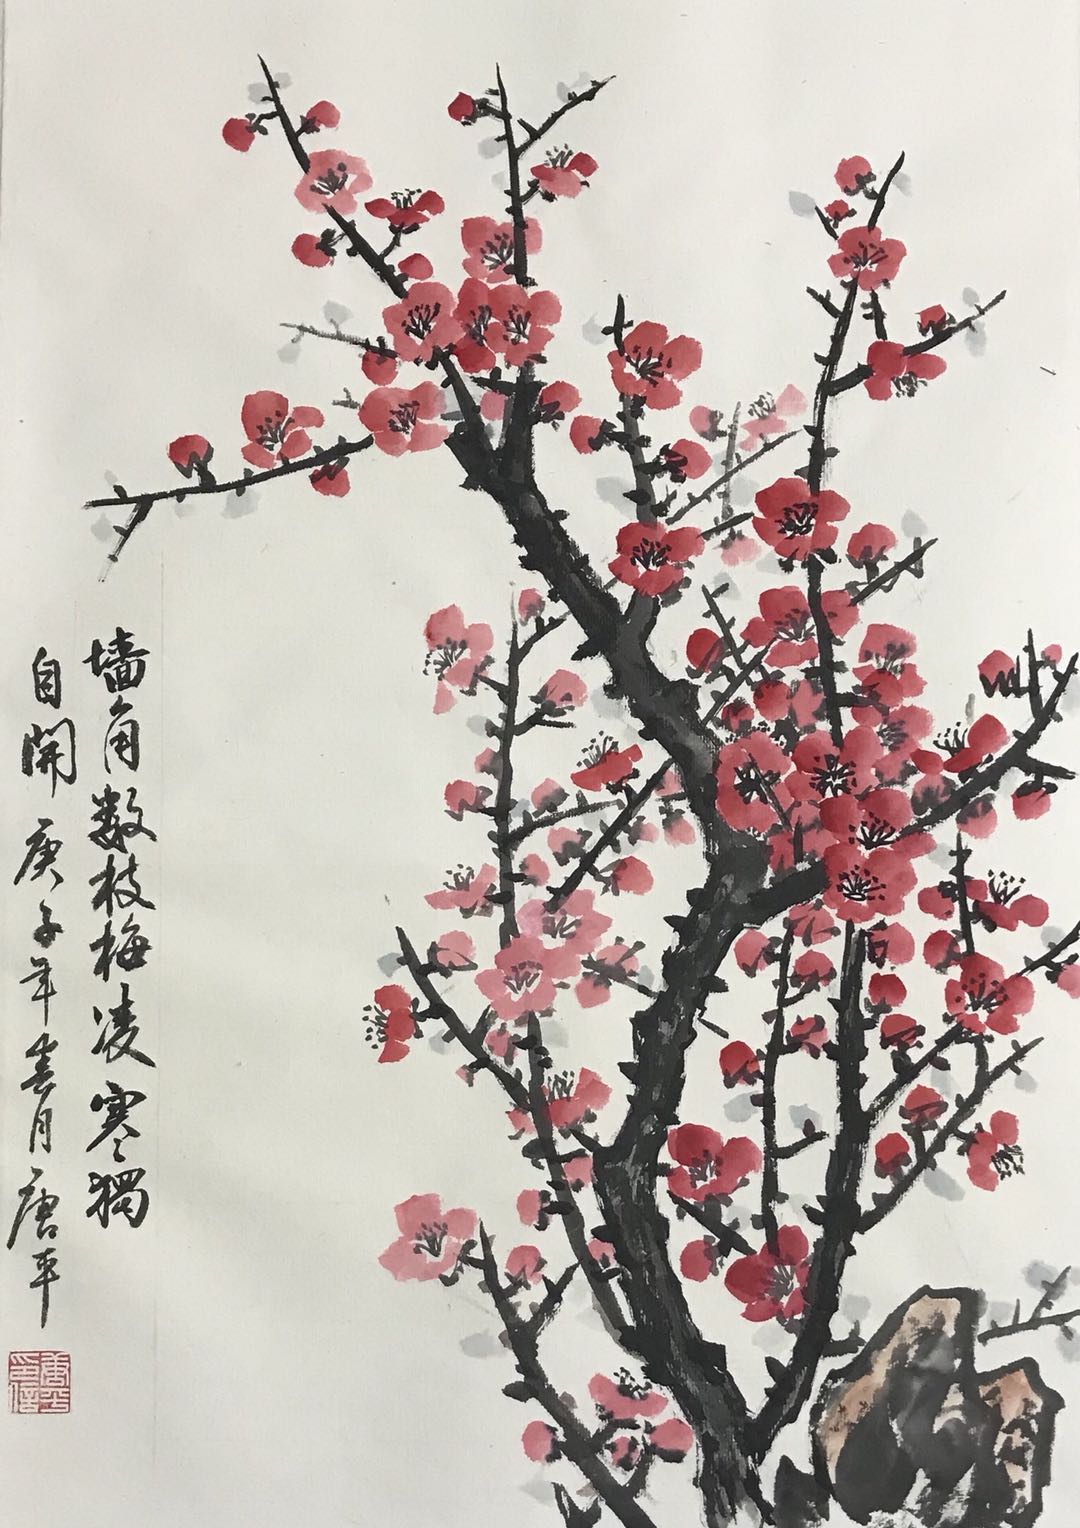 墙角数枝梅凌寒獨
自開 庚子年春月 唐平
唐平印信